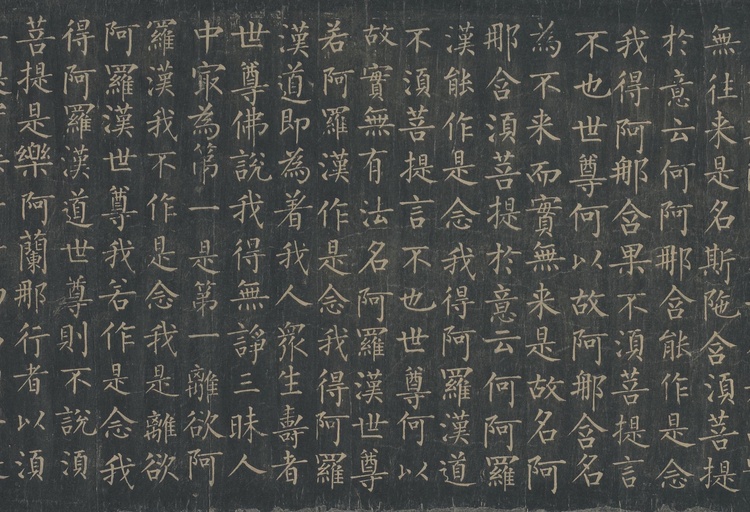 無往来是名斯陁含湏菩提
於意云何阿那含能作是念
我得阿那含果不湏菩提言
不也世尊何以故阿那含名
為不来而實無来是故名阿
那含湏菩提於意云何阿羅
漢能作是念我得阿羅漢道
不湏菩提言不也世尊何以
故實無有法名阿羅漢世尊
若阿羅漢作是念我得阿羅
漢道即為著我人衆生壽者
世尊佛說我得無諍三昧人
中㝡為第一是第一離欲阿
羅漢我不作是念我是離欲
阿羅漢世尊我若作是念我
得阿羅漢道世尊則不說湏
菩提是樂阿蘭那行者以湏